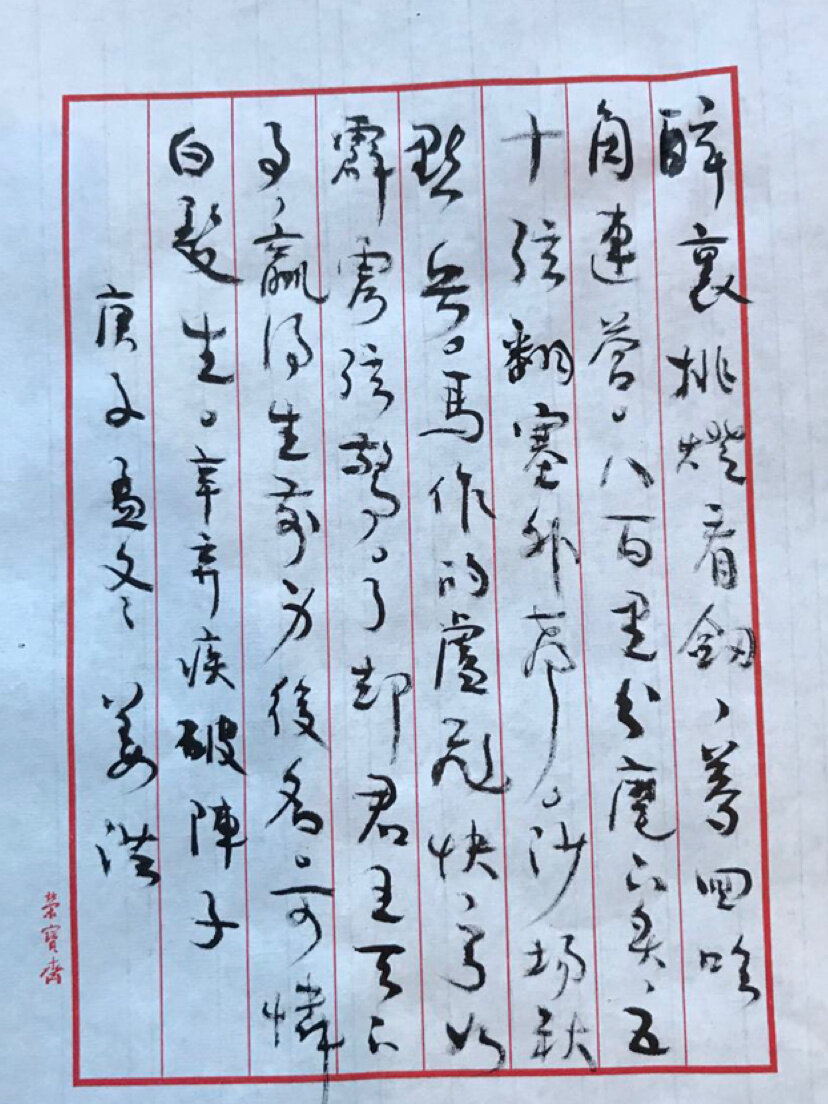 醉裏挑燈看劔、夢回吹
角連营。八百里分麾下炙、五
十弦翻塞外聲。沙場秋
點兵。馬作的盧飛快、弓如
霹靂弦驚。了却君王天下
事、贏得生前身後名。可憐
白髮生。辛弃疾破陣子
庚子孟冬 姜洪
榮寳齋